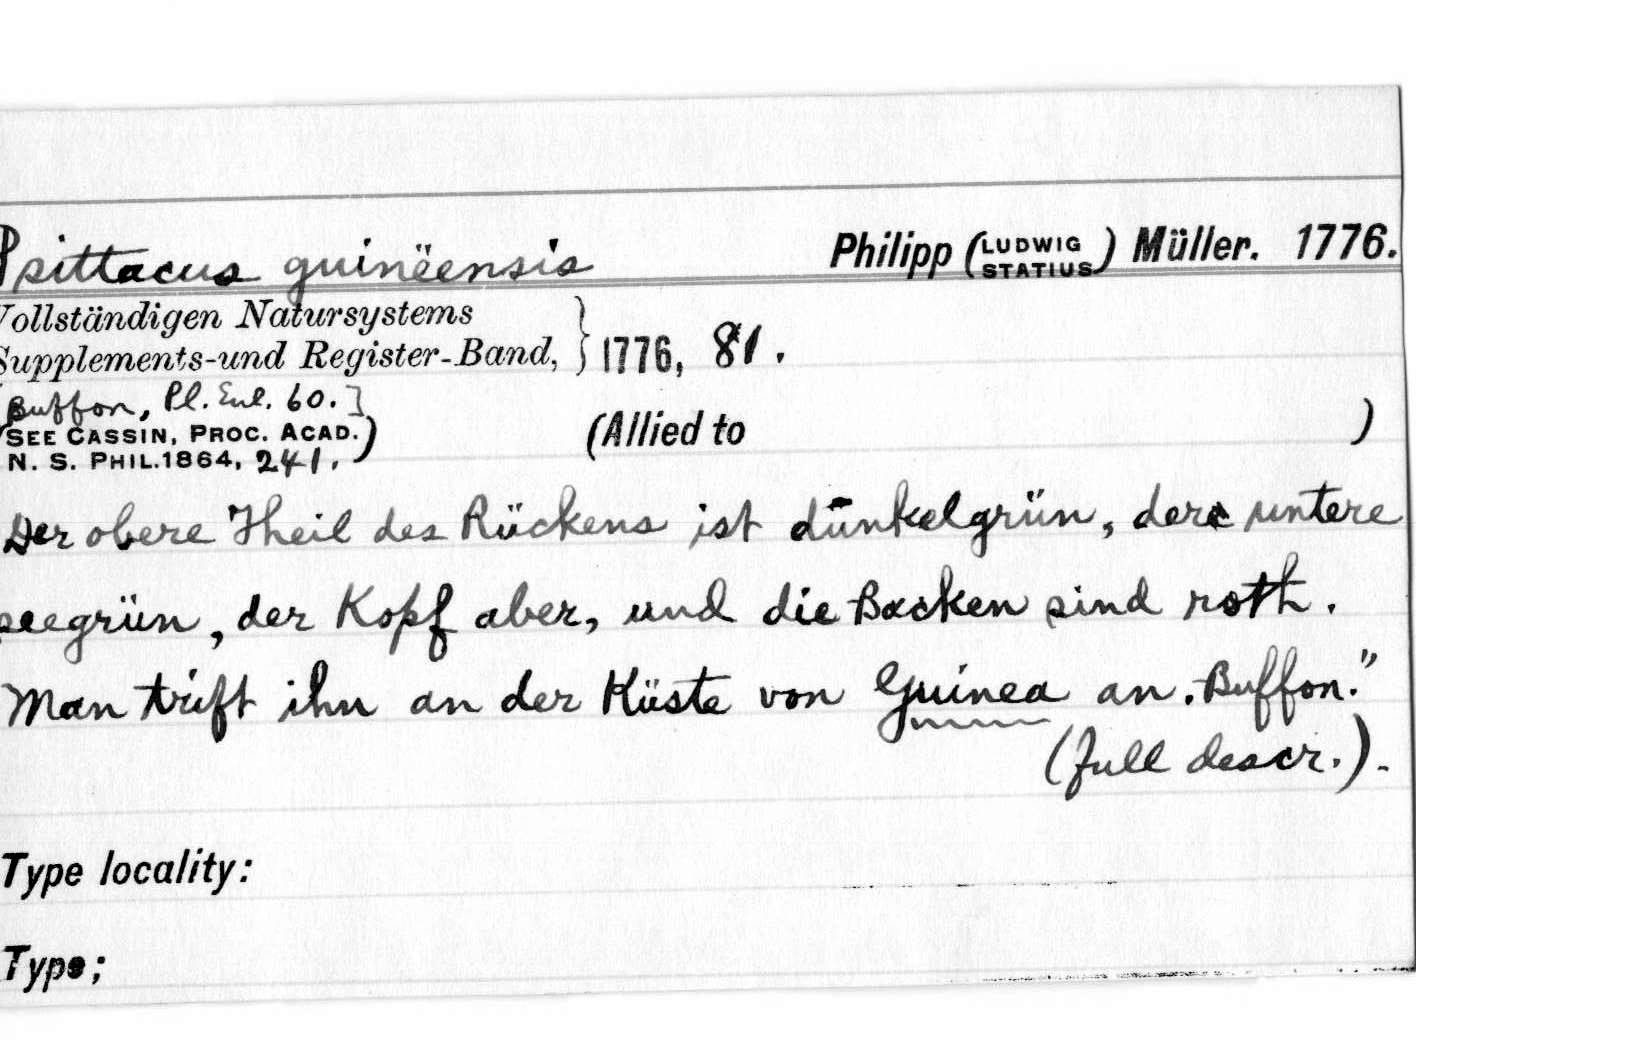 Psittacus guinëensis Philipp (LUDWIG STATIUS) Müller. 1776.
Vollständigen Natursystems
Supplements-und Register-Band, } 1776, 81.
[Buffon, Pl. Enl. 60.]
(SEE CASSIN, PROC. ACAD. (Allied to )
N. S. PHIL. 1864, 241.)
Der obere Theil des Rückens ist dunkelgrün, der untere
seegrün, der Kopf aber, und die Backen sind roth.
Man trift ihn an der Küste von Guinea an. Buffon."
(full descr.).
Type locality:
Type;